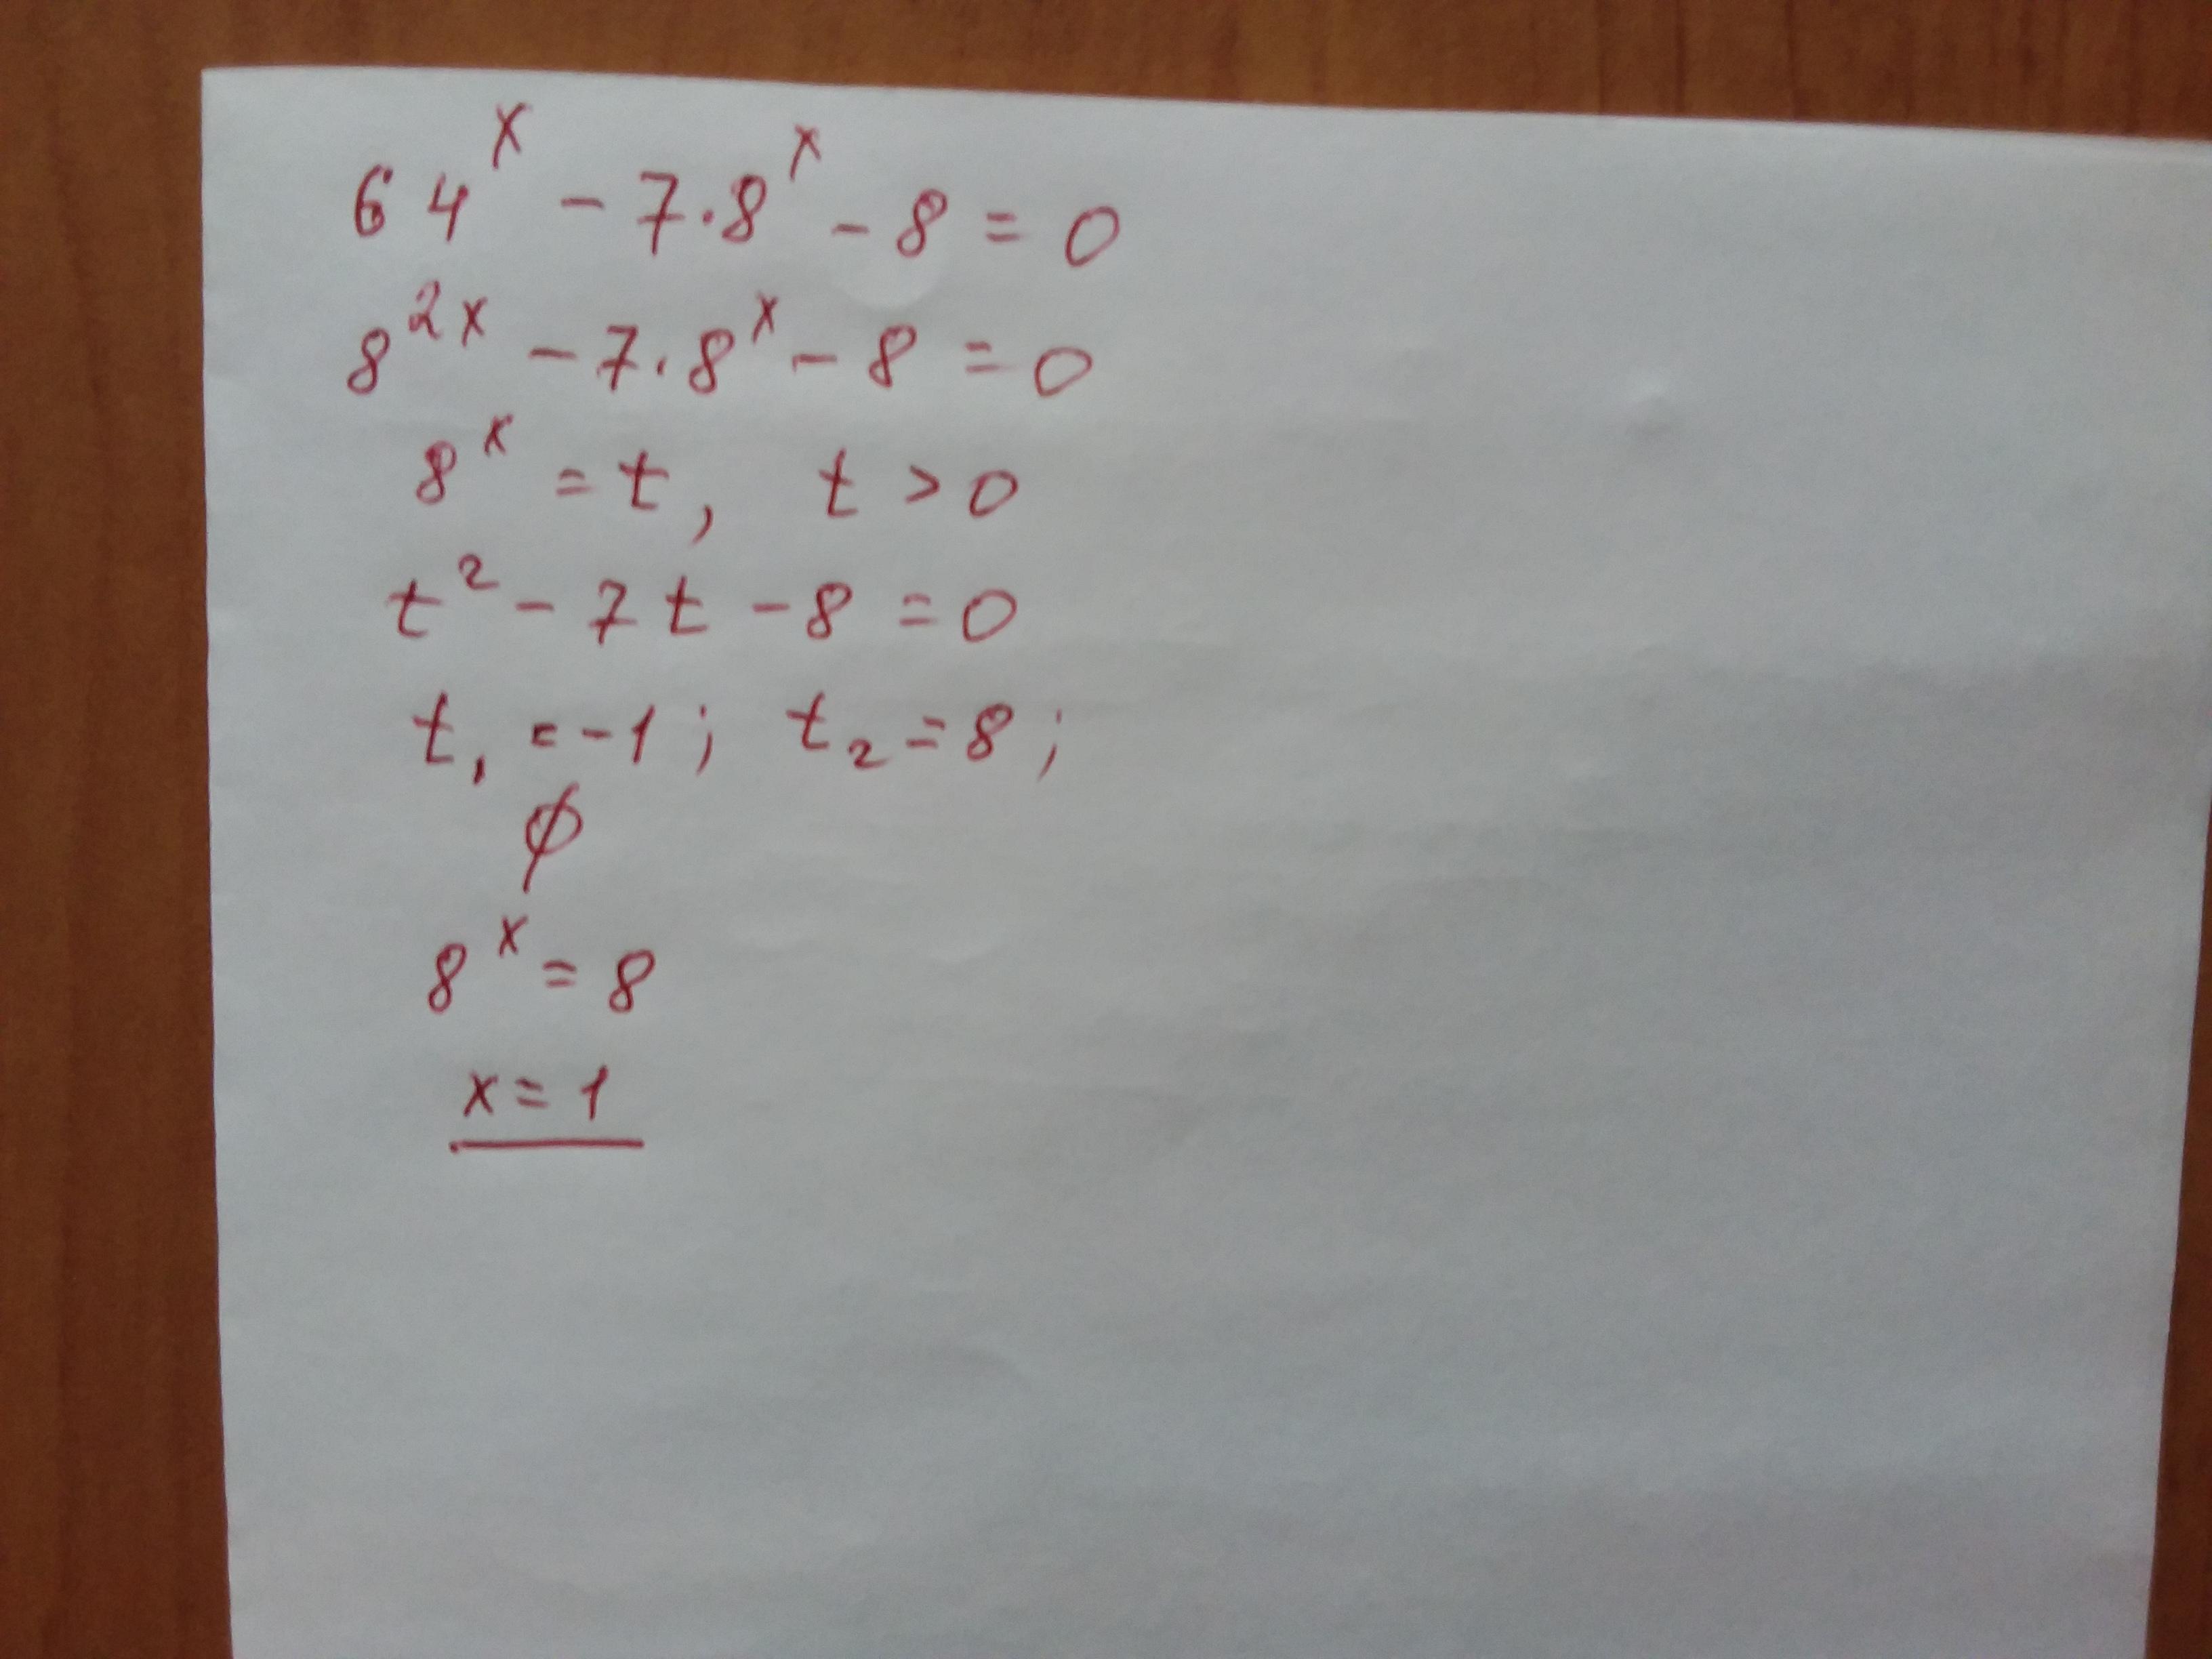 64ˣ - 7·8ˣ - 8 = 0
8²ˣ - 7·8ˣ - 8 = 0
8ˣ = t, t > 0
t² - 7t - 8 = 0
t₁ = -1; t₂ = 8;
∅
8ˣ = 8
x = 1